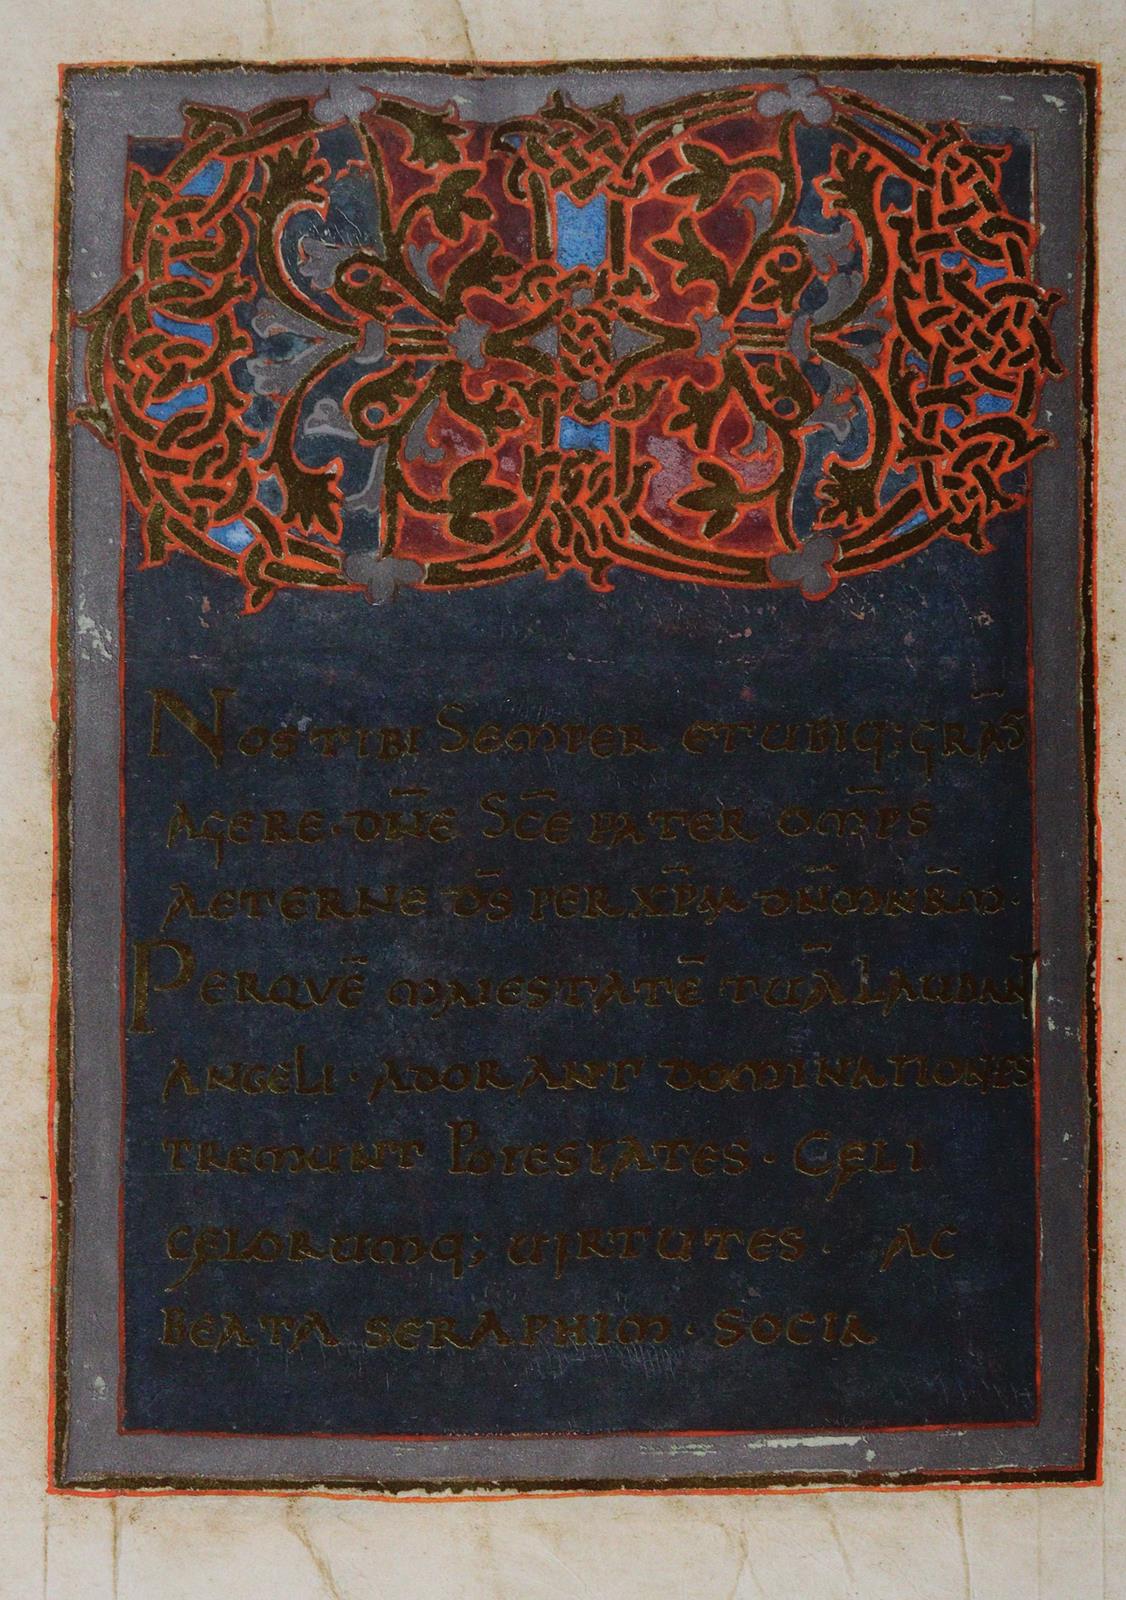 NOS TIBI SEMPER ET UBIQ; GRAS̄
AGERE · DN̄E SC̄E PATER OM̄PS
AETERNE D̄S PER XP̄M DN̄M NR̄M ·
PER QUĒ MAIESTATĒ TUĀ LAUDANT̄
ANGELI · ADORANT DOMINATIONES
TREMUNT POTESTATES · CĘLI
CĘLORUMQ; UIRTUTES · AC
BEATA SERAPHIM · SOCIA